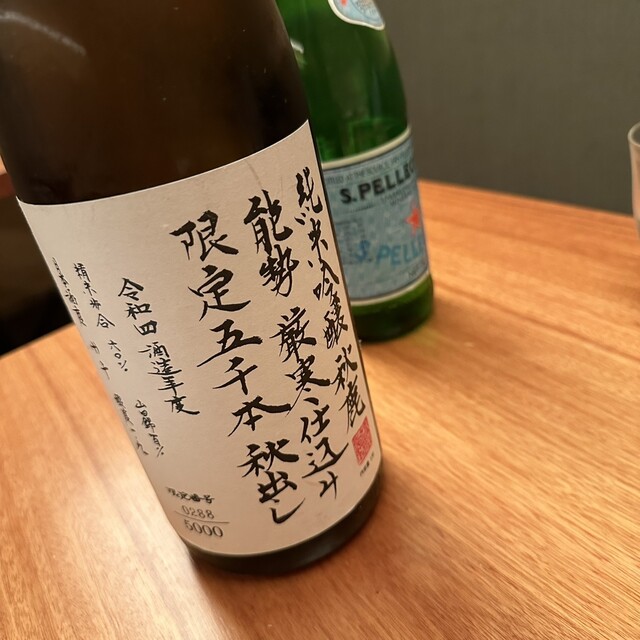 純米吟醸 秋鹿
能勢 厳寒仕込み
限定五千本 秋出し
令和四酒造年度
山田錦百%
精米歩合 六〇%
限定番号
0288
5000
S.PELLE
S.PELLE